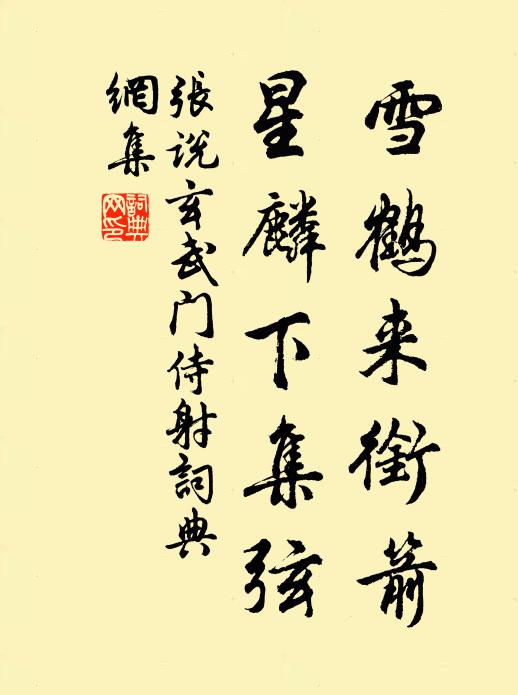 雪鶴来銜箭
星麟下集弦
張說玄武门侍射詞典
網集
詞典网印